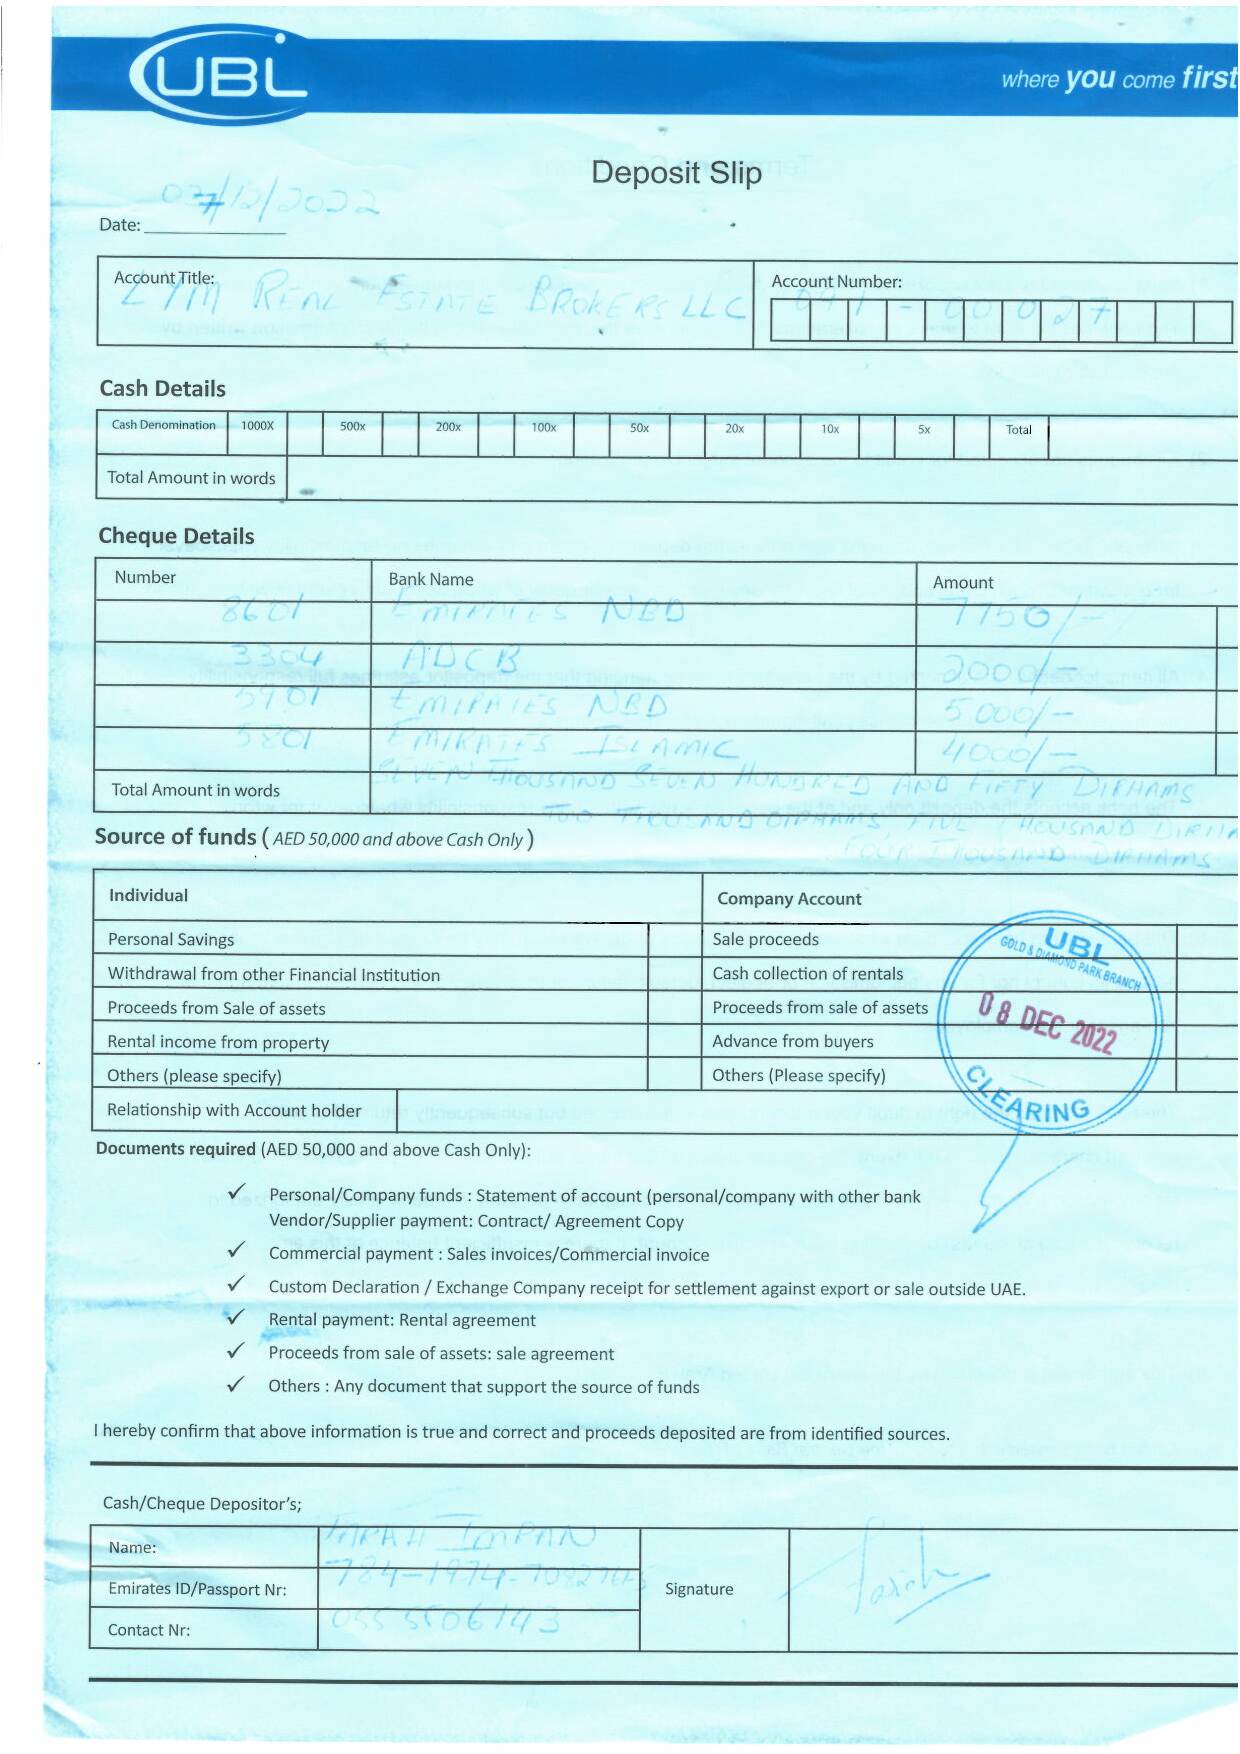 UBL
where you come first
Deposit Slip
Date: 07/12/2022
Account Title:
LYM REAL ESTATE BROKERS LLC
Account Number:
041-00027
Cash Details
Cash Denomination 1000X 500x 200x 100x 50x 20x 10x 5x Total
Total Amount in words
Cheque Details
Number Bank Name Amount
8601 EMIRATES NBD 7750/-
3304 ADCB 2000/-
5901 EMIRATES NBD 5000/-
5801 EMIRATES ISLAMIC 4000/-
Total Amount in words SEVEN THOUSAND SEVEN HUNDRED AND FIFTY DIRHAMS
TWO THOUSAND DIRHAMS, FIVE THOUSAND
FOUR THOUSAND DIRHAMS
Source of funds ( AED 50,000 and above Cash Only )
Individual Company Account
Personal Savings Sale proceeds
Withdrawal from other Financial Institution Cash collection of rentals
Proceeds from Sale of assets Proceeds from sale of assets
Rental income from property Advance from buyers
Others (please specify) Others (Please specify)
Relationship with Account holder
UBL
GOLD & DIAMOND PARK BRANCH
08 DEC 2022
CLEARING
Documents required (AED 50,000 and above Cash Only):
✓ Personal/Company funds : Statement of account (personal/company with other bank
Vendor/Supplier payment: Contract/ Agreement Copy
✓ Commercial payment : Sales invoices/Commercial invoice
✓ Custom Declaration / Exchange Company receipt for settlement against export or sale outside UAE.
✓ Rental payment: Rental agreement
✓ Proceeds from sale of assets: sale agreement
✓ Others : Any document that support the source of funds
I hereby confirm that above information is true and correct and proceeds deposited are from identified sources.
Cash/Cheque Depositor's;
Name: FARAH IMRAN
Emirates ID/Passport Nr: 784-1974-
Contact Nr: 055 5506143
Signature